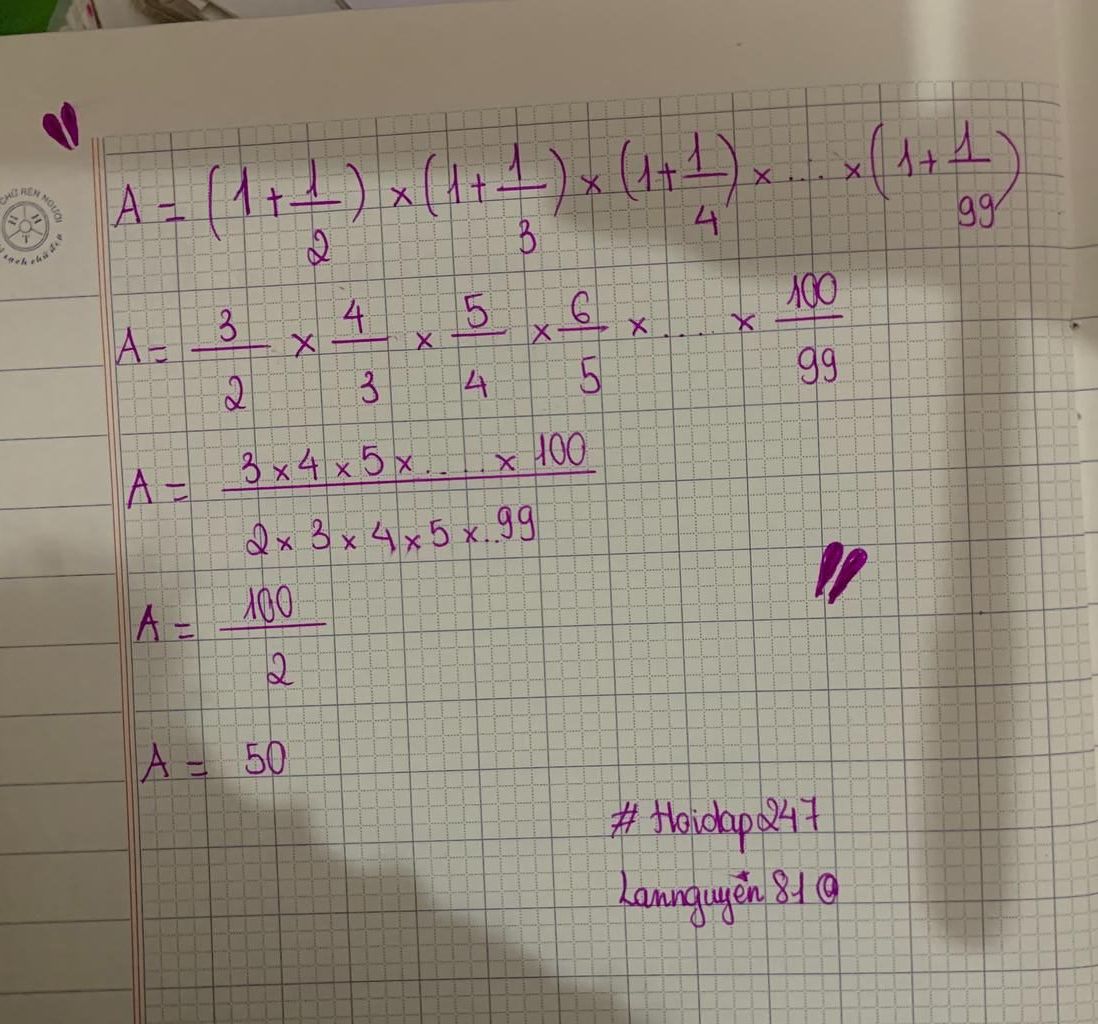 A = (1 + 1/2) × (1 + 1/3) × (1 + 1/4) × .... × (1 + 1/99)
A = 3/2 × 4/3 × 5/4 × 6/5 × .... × 100/99
A = 3 × 4 × 5 × ..... × 100 / 2 × 3 × 4 × 5 × .. 99
A = 100/2
A = 50
# Hoidap247
Lannguyễn 81@
CHỮ RÈN NGƯỜI